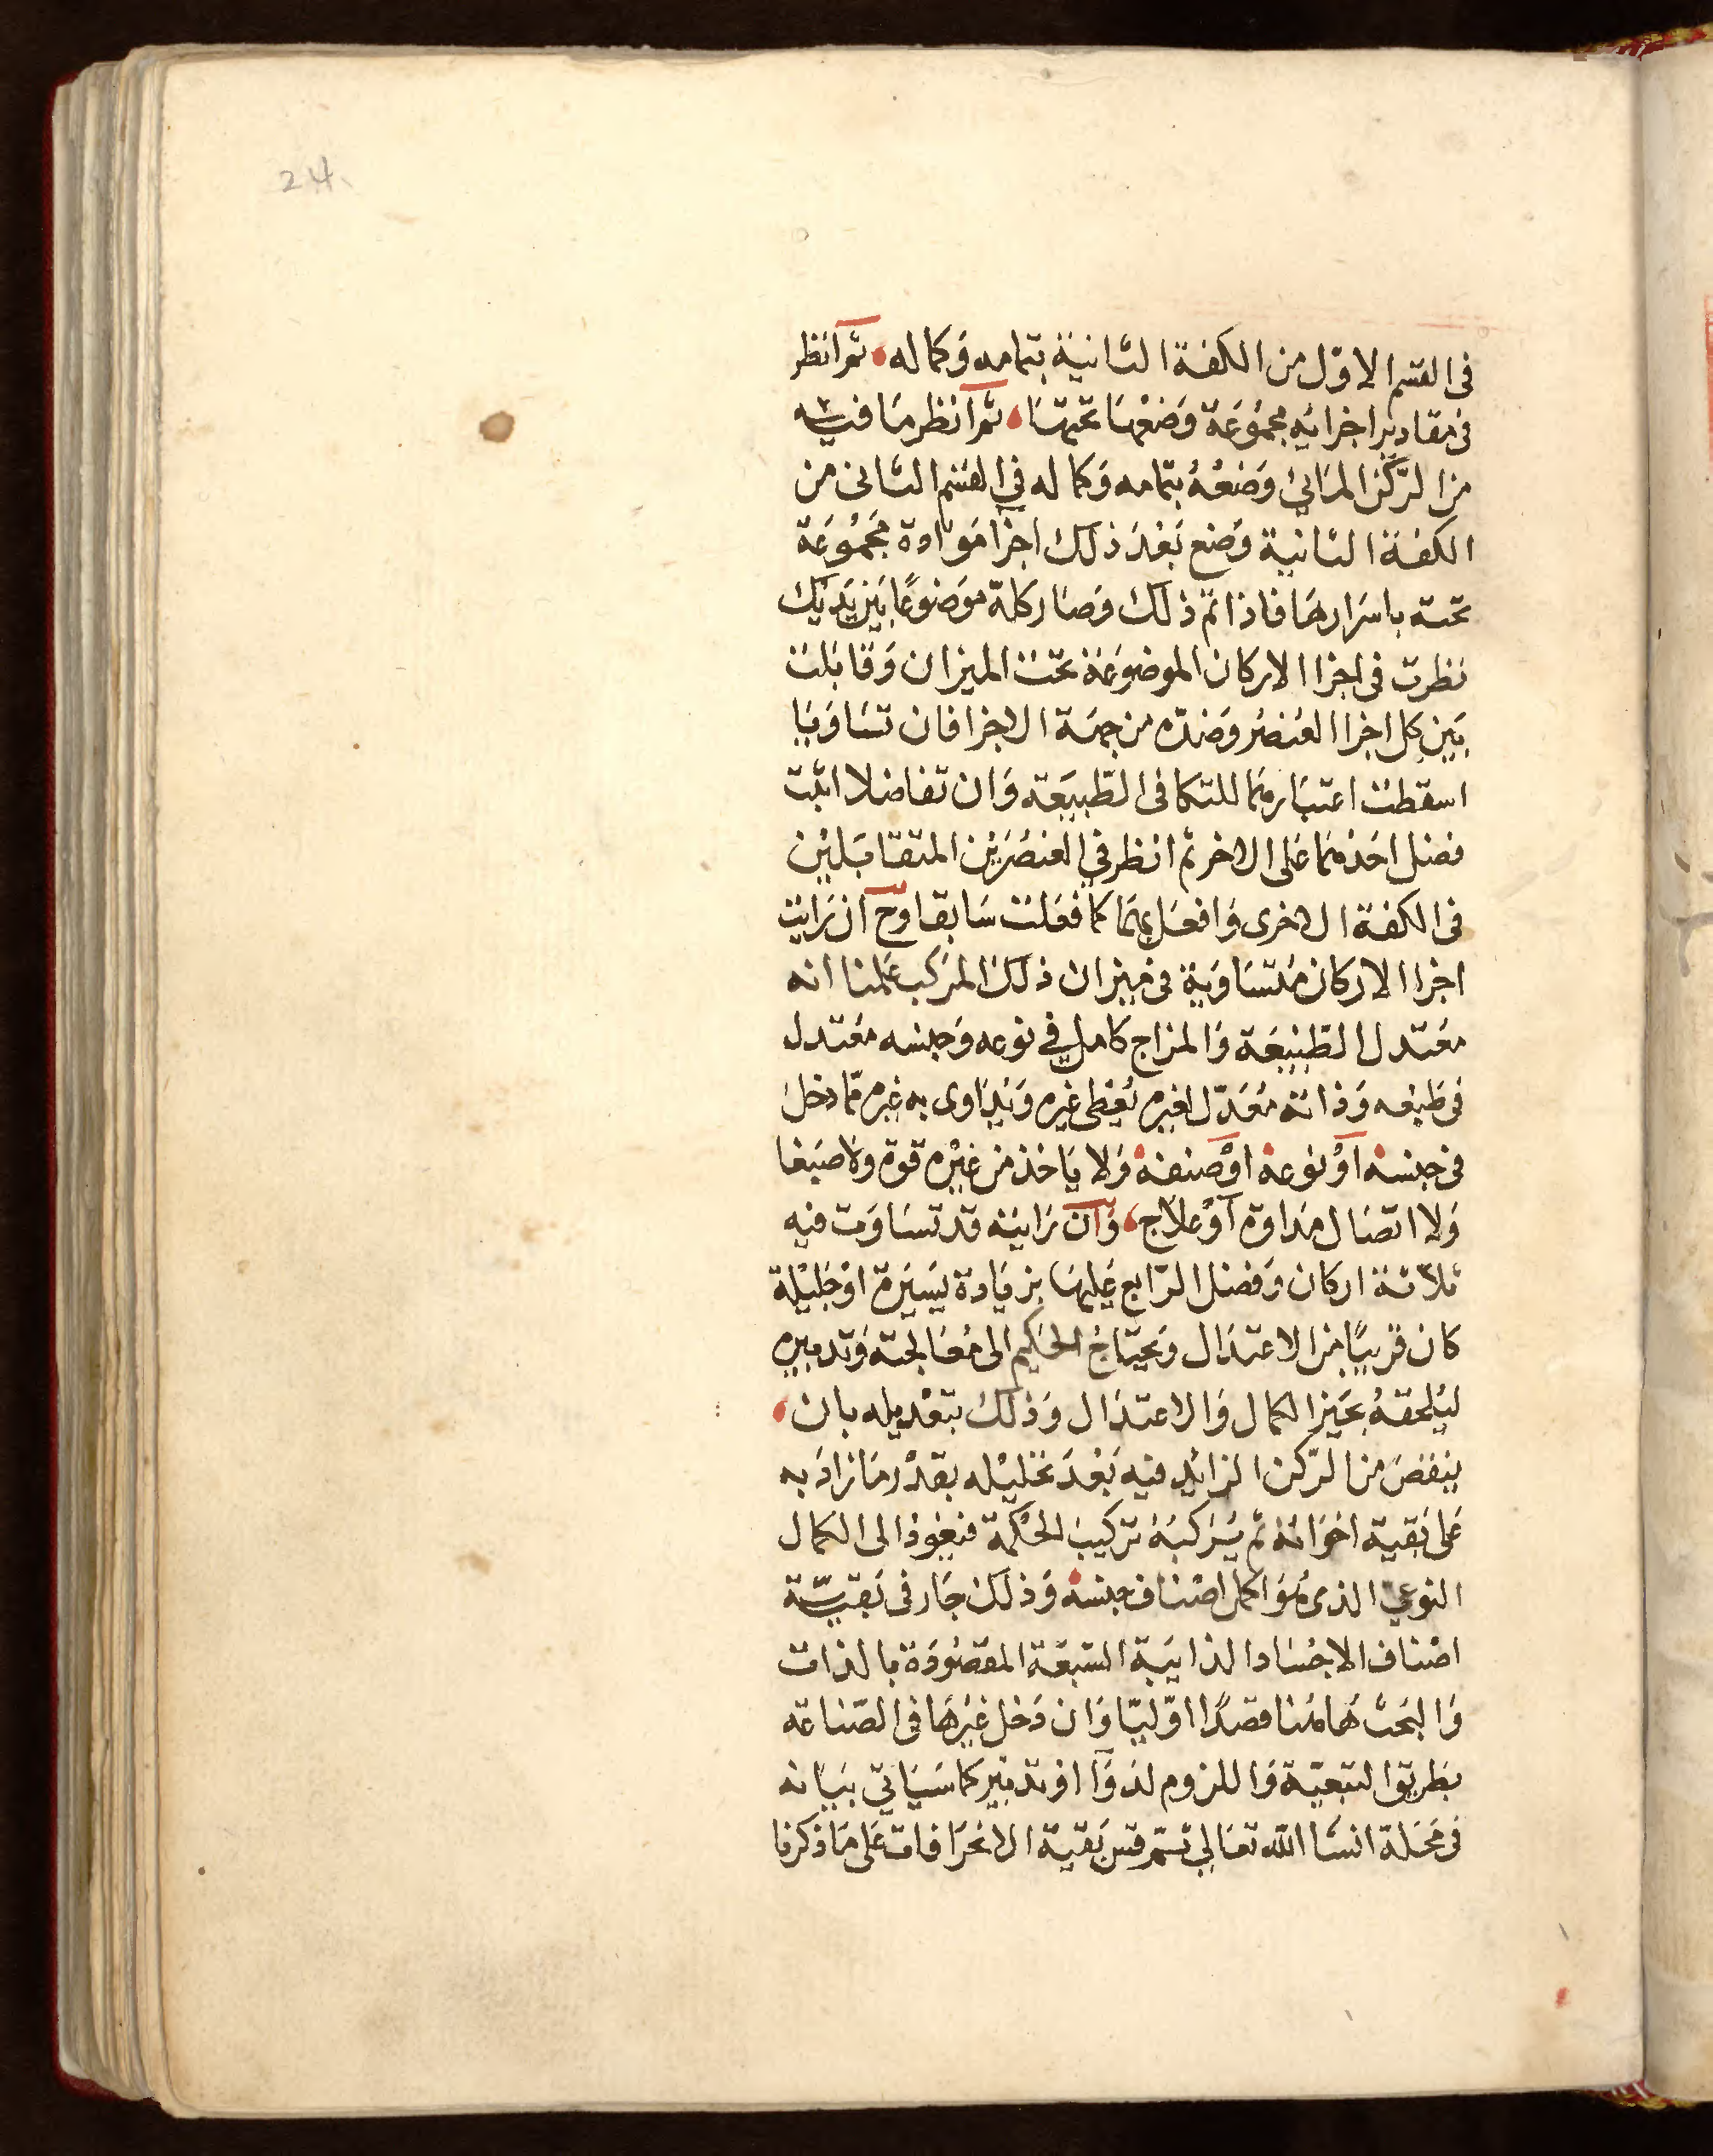 24
فى القسم الاوّل من الكفة الثانية بتمامه وَكماله ثم انظر
فى مقادير اجزائه مجمُوعَة وَضعْهَا تحتهَا ثم انظر مَا فيه
من الرّكن المَائى وَضعْهُ بتمامه وَكماله في القسم الثانى من
الكفة الثانية وَضع بَعْدَ ذلك اجزآ مَوَادة مجَمُوعَة
تحته باسرَارهَا فاذا تم ذلك وَصَار كله موَضوعًا بَين يَدَيْك
نظرت فى اجزا الاركان الموضوعَة تحت الميزان وَقابَلت
بَين كل اجزا العُنصُر وَضدّه من جهَة الاجزا فان تسَاوَيَا
اسقطت اعتبَارهمَا للتكافى الطّبيعَة وَان تفاضلا اثبت
فضل احَدْهمَا عَلى الاخر ثم انظر في العنصُرَيْن المتقابَلين
فى الكفة الاخرى وَافعَل بهمَا كما فعَلت سَابقا وَح ان رَايت
اجزا الاركان مُتسَاوَية فى ميزان ذلك المرَكب عَلمنا انه
معْتدل الطّبيْعَة وَالمزاج كامل في نوعه وَجنسه معْتدل
فى طبْعه وَذاته مُعَدّل لغيره يُعْطى غيره وَيُدَاوى به غيره ممّا دخل
فى جنسه اوْ نوعه اوْ صنفه وَلا يَاخذ من غيْره قوة ولا صبَغا
وَلا اتصَال مدَاوة آوْ علاج وَان رَايته قد تسَاوَت فيه
ثلاثة اركان وَفضل الرّابع عَليهَا بزيَادة يَسيَرة اوْ جَليْلة
كان قريبًا من الاعتدَال وَيحتَاجُ الحكيم الى مُعَالجته وَتدبيره
ليُلحقهُ بحَيز الكمال وَالاعتدَال وَذلك بتعْديله بان
ينقصَ من الرّكن الزائد فيه بَعْدَ تحَليْله بقدْر مَا زادَ به
عَلى بَقية اخوَاته ثم يُرَكبُه تركيبَ الحكمة فيَعُود الى الكمال
النوعى الذى هُوَ اكمل اصْناف جنسه وَذلك جَار فى بَقيّة
اصْناف الاجْسَاد الذايبَة السّبعَة المقصُودَة بالذات
وَالبَحث هَاهُنا قصدًا اوّليّا وَان دَخل غيْرهَا في الصّناعَة
بطَريق التبعيّة وَاللزوم لدَوَآ اوْ تدبْير كما سَيَاتي بيَانه
فى مَحَلة انشَا الله تعَالي ثم قس بَقية الانحرَافات عَلى مَا ذكرنا